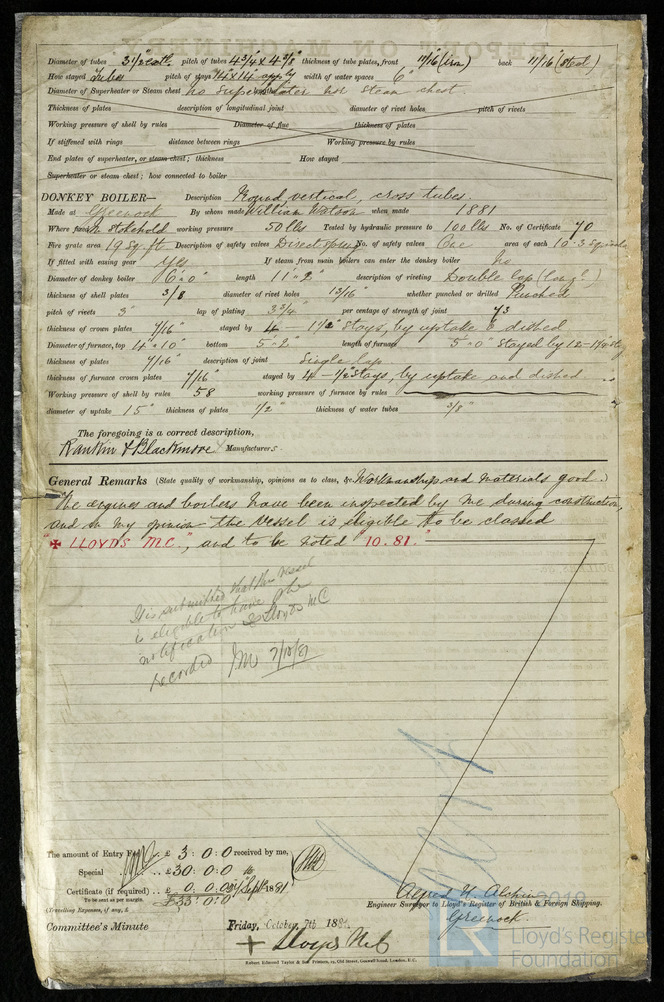 Diameter of tubes 3 1/2" outs. pitch of tubes 4 3/4 x 4 3/8 thickness of tube plates, front 11/16 (iron) back 11/16 (steel)
How stayed Tubes pitch of stays 14 x 14 apply width of water spaces 6"
Diameter of Superheater or Steam chest no superheater nor steam chest.
Thickness of plates description of longitudinal joint diameter of rivet holes pitch of rivets
Working pressure of shell by rules Diameter of flue thickness of plates
If stiffened with rings distance between rings Working pressure by rules
End plates of superheater, or steam chest; thickness How stayed
Superheater or steam chest; how connected to boiler
DONKEY BOILER— Description Round, vertical, cross tubes.
Made at Greenock By whom made William Watson when made 1881
Where fixed In stokehold working pressure 50 lbs Tested by hydraulic pressure to 100 lbs No. of Certificate 70
Fire grate area 19 sq. ft Description of safety valves Direct spring No. of safety valves One area of each 10.3 sq.
If fitted with easing gear yes If steam from main boilers can enter the donkey boiler no
Diameter of donkey boiler 6'.0" length 11'.2" description of riveting Double lap
thickness of shell plates 3/8 diameter of rivet holes 13/16" whether punched or drilled Punched
pitch of rivets 3" lap of plating 3 3/4" per centage of strength of joint 73
thickness of crown plates 7/16" stayed by 4 - 1 1/2" stays, by uptake & dished
Diameter of furnace, top 4'.10" bottom 5'.2" length of furnace 5'.0" stayed by 12
thickness of plates 7/16" description of joint Single lap
thickness of furnace crown plates 7/16" stayed by 4 - 1 1/2" stays, by uptake and dished
Working pressure of shell by rules 58 working pressure of furnace by rules
diameter of uptake 15" thickness of plates 1/2" thickness of water tubes 3/8"
The foregoing is a correct description,
Rankin & Blackmore Manufacturers.
General Remarks (State quality of workmanship, opinions as to class, &c. Workmanship and materials good.
The engines and boilers have been inspected by me during construction,
and in my opinion the vessel is eligible to be classed
"✠ LLOYDS M.C.", and to be noted "10.81."
It is submitted that this vessel
is eligible to have the
notification ✠ Lloyds MC
recorded 7/10/81
The amount of Entry Fee .. £ 3 : 0 : 0 received by me,
Special .. £ 30 : 0 : 0
Certificate (if required) .. £ 0 . 0 . 0 Sept. 1881
To be sent as per margin. £33 : 0 : 0
(Travelling Expenses, if any, £
Alfred H. Alchin
Engineer Surveyor to Lloyd's Register of British & Foreign Shipping.
Greenock.
Committee's Minute Friday, October, 7th 188
+ Lloyds M.C
Robert Edmund Taylor & Son Printers, 19, Old Street, Goswell Road, London, E.C.
Lloyd's Register
Foundation